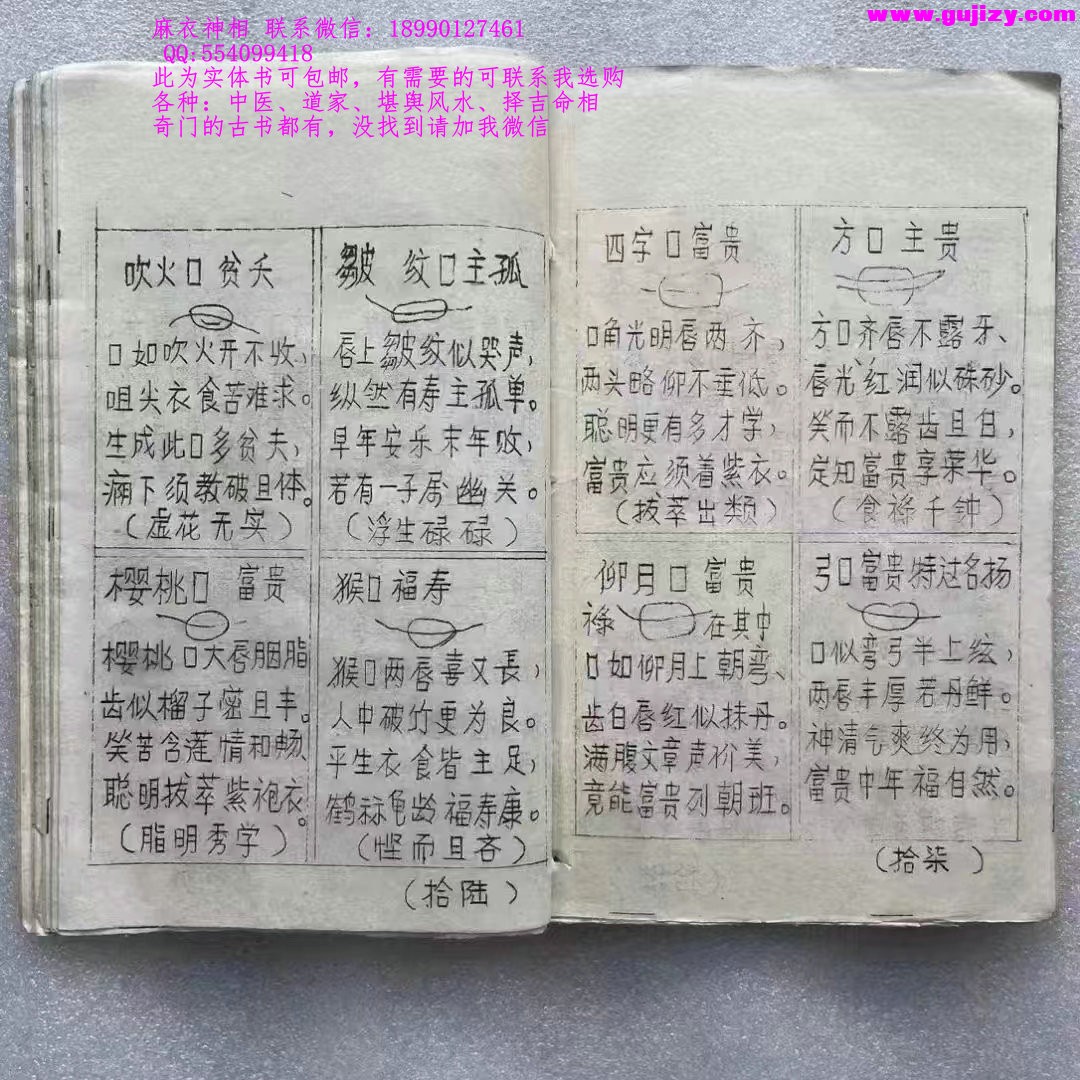 麻衣神相 联系微信：18990127461
QQ:554099418
此为实体书可包邮，有需要的可联系我选购
各种：中医、道家、堪舆风水、择吉命相
奇门的古书都有，没找到请加我微信
www.gujizy.com
吹火口贫夭
口如吹火开不收，
咀尖衣食苦难求。
生成此口多贫夫，
下须教破且体。
（虚花无实）
皱 纹口主孤
唇上皱纹似哭声，
纵然有寿主孤单。
早年安乐末年败，
若有一子房幽关。
（浮生碌碌）
樱桃口 富贵
樱桃口大唇胭脂
齿似榴子密且丰。
笑苦含莲情和畅
聪明拔萃紫袍衣。
（脂明秀学）
猴口福寿
猴口两唇喜又長，
人中破竹更为良。
平生衣食皆主足，
鹤龟龄福寿康。
（悭而且吝）
（拾陆）
四字口富贵
口角光明唇两齐，
两头略仰不垂低。
聪明更有多才学，
富贵应须着紫衣。
（拔萃出类）
方口主贵
方口齐唇不露牙、
唇光红润似硃砂。
笑而不露齿且白，
定知富贵享荣华。
（食禄千钟）
仰月口富贵
禄在其中
口如仰月上朝弯、
齿白唇红似抹丹。
满腹文章声价美，
竟能富贵列朝班。
弓口富贵特过名扬
口似弯弓半上弦，
两唇丰厚若丹鲜。
神清气爽终为用，
富贵中年福自然。
（拾柒）